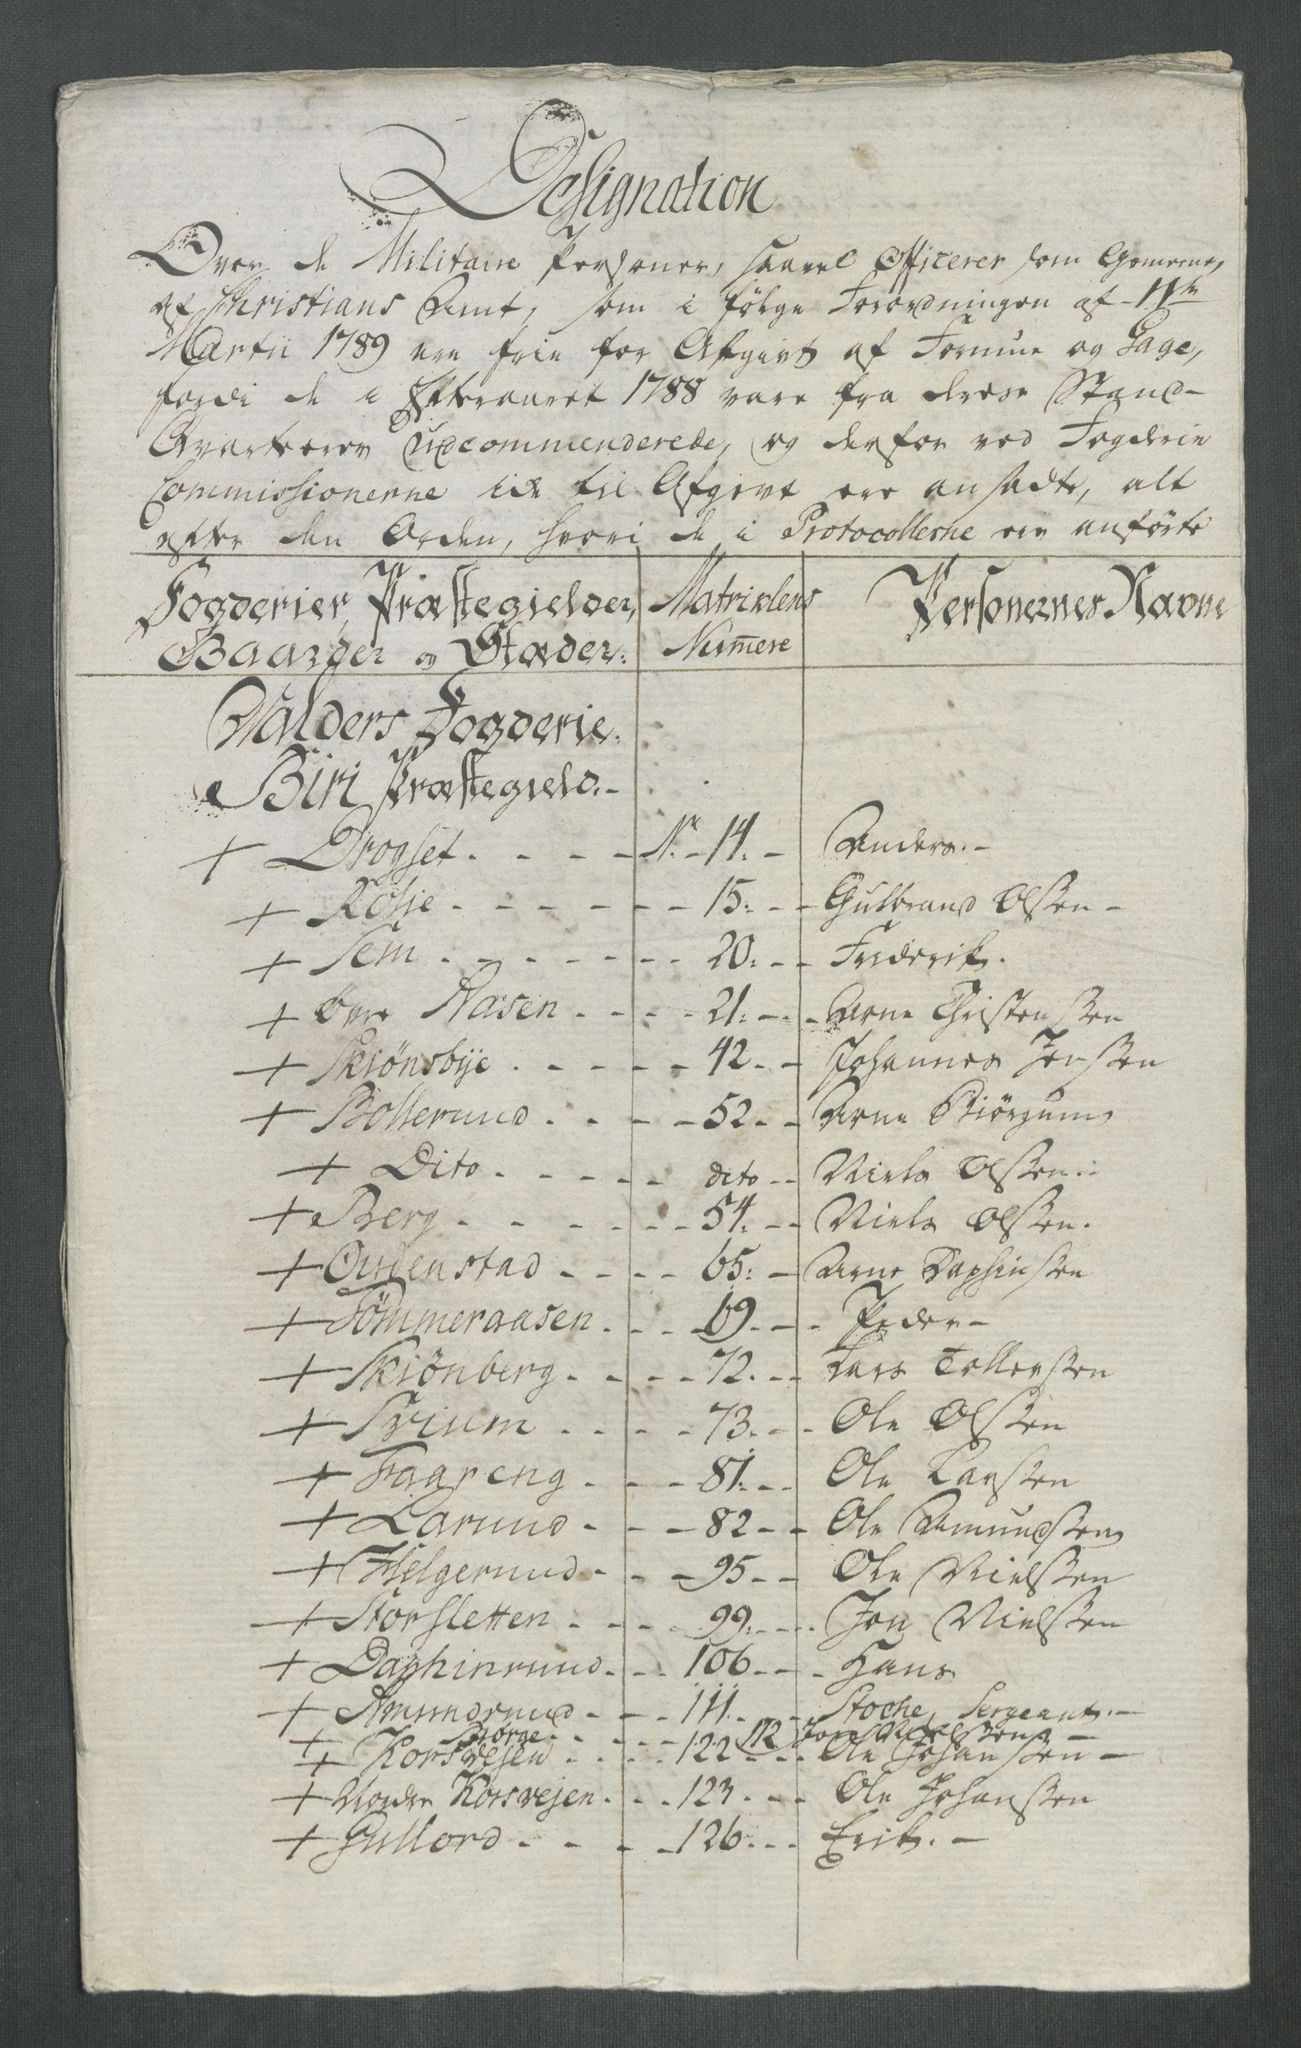 Designation
Over de Militaire Personer, saavel Officerer som Gemeene,
af Christians Amt, som i følge Forordningen af 11te
Martii 1789 ere frie for Afgivt af Formue og Gage,
fordi de i Efteraaret 1788 vare fra deres Stand-
Qvarterer udcommenderede, og derfor ved Fogderie
Commissionerne ike til Afgivt ere ansadte, alt
efter den Orden, hvori de i Protocollerne ere anførte
Fogderier, Præstegielder, Matriklens Personernes Navne
Gaarder og Stæder: Numere
Valders Fogderie.
Biri Præstegield.-
+ Drogset. - - - - No. - 14. - Anders. -
+ Røste - - - - - - - 15. - - Gulbrand Olsen -
+ Sem - - - - - - - 20. - - Friderik.
+ Øvre Aasen - - - - 21. - - Arne Christensen
+ Skiønsbye - - - - - 42. - Johannes Jensen
+ Bollerund - - - - 52. - - Arne
+ Dito - - - - - dito - - Niels Olsen.
+ Berg - - - - - 54. - - Niels Olsen.
+ Oudenstad - - - - 65. - Arne Daphinsen
+ Sømmeraasen - - - - 69. - - Peder -
+ Skiønberg - - - - 72. - - Lars Tollersen
+ Svium - - - - 73. - - Ole Olsen
+ Faareng - - - - 81. - - Ole Larsen
+ Larund - - - - 82 - - Ole Amundsen
+ Helgerund - - - 95 - - Ole Nielsen
+ Storsletten - - - - 99. - - - Jon Nielsen
+ Daphinrund - - - 106. - - - Hans
+ Amundrund - - - - 111. - - - Stoche, Sergeant. -
+ Biørge - - - - - - 112 Nielsen -
+ Korsvejen - - - - 122 - - Ole Johansen -
+ Nordre Korsvejen - - - 123. - - Ole Johansen
+ Gullord - - - - - 126. - - - Erik. -